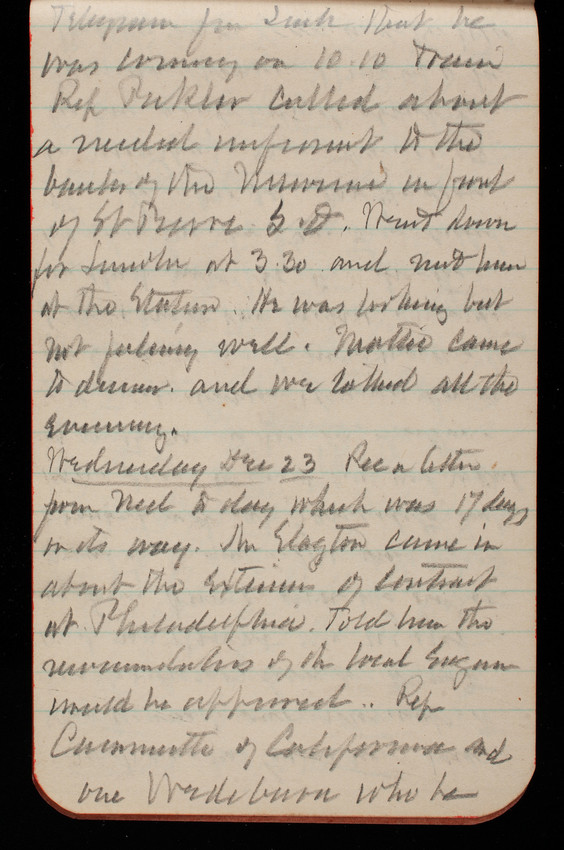 Telegram from Linck that he
was coming on 10.10 Train
Rep Pickler called about
a needed improvmt to the
banks of the Missouri in front
of St Pierre S.D. Went down
for Lincoln at 3.30 and met him
at the Station. He was looking but
not feeling well. Mattie came
to dinner. and we talked all the
Evening.
Wednesday Dec 23 Rec a letter
from Ned to day which was 17 days
on its way. Mr Clayton came in
about the extension of contract
at Philadelphia. Told him the
recommendations of the local Engineer
would be approved.. Rep
Caminetti of California and
one Wedeburn who be